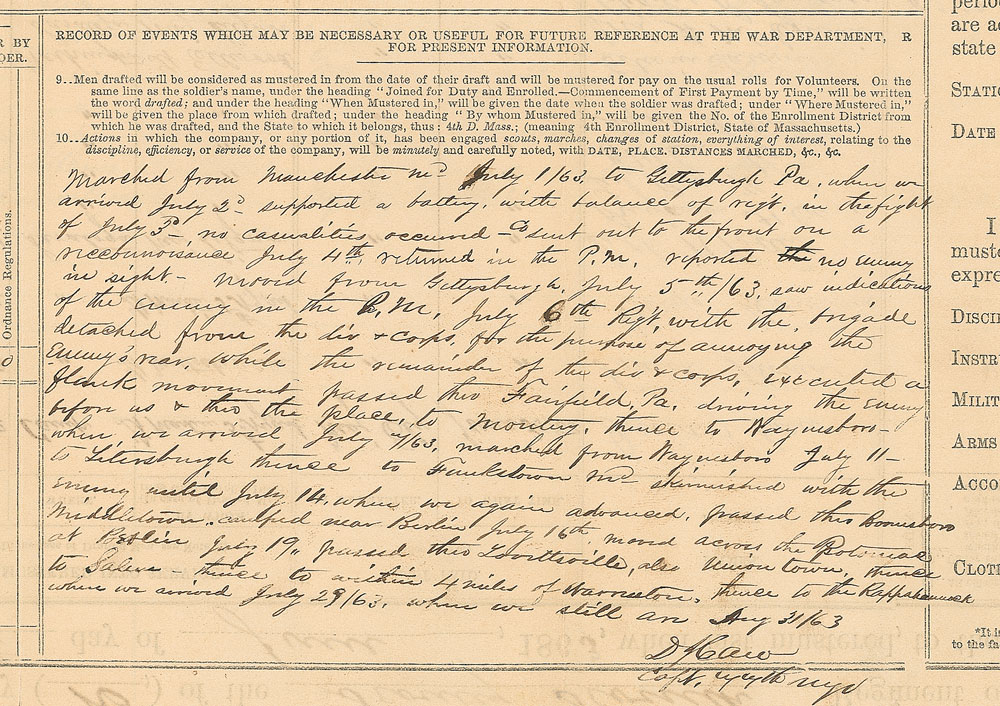 R BY
DER.
Ordnance Regulations.
RECORD OF EVENTS WHICH MAY BE NECESSARY OR USEFUL FOR FUTURE REFERENCE AT THE WAR DEPARTMENT, R
FOR PRESENT INFORMATION.
9..Men drafted will be considered as mustered in from the date of their draft and will be mustered for pay on the usual rolls for Volunteers. On the
same line as the soldier's name, under the heading "Joined for Duty and Enrolled.—Commencement of First Payment by Time," will be written
the word drafted; and under the heading "When Mustered in," will be given the date when the soldier was drafted; under "Where Mustered in,"
will be given the place from which drafted; under the heading "By whom Mustered in," will be given the No. of the Enrollment District from
which he was drafted, and the State to which it belongs, thus: 4th D. Mass.; (meaning 4th Enrollment District, State of Massachusetts.)
10...Actions in which the company, or any portion of it, has been engaged scouts, marches, changes of station, everything of interest, relating to the
discipline, efficiency, or service of the company, will be minutely and carefully noted, with DATE, PLACE. DISTANCES MARCHED, &c., &c.
Marched from Manchester Md July 1/63, to Gettysburgh Pa. when we
arrived July 2d supported a battery, with balance of regt. in the fight
of July 3d no casualities occured Co sent out to the front on a
reconnoisance July 4th returned in the P.M. reported the no enemy
in sight - moved from Gettysburgh, July 5th/63, saw indications
of the enemy in the P.M. July 6th Regt, with the brigade
detached from the div & corps, for the purpose of annoying the
Enemy's rear, while the remainder of the div & corps, executed a
flank movement passed thro Fairfield, Pa. driving the enemy
before us & thro the place, to Montery, thence to Waynesboro-
when we arrived July 7/63, marched from Waynesboro July 11-
to Litersburgh thence to Funkstown Md skirmished with the
enemy until July 14, when we again advanced, passed thro Boonesboro
Middletown, camped near Berlin July 16th, moved across the Potomac
at Berlin July 19, passed thro Lovettsville, also Union town, thence
to Salem - thence to within 4 miles of Warrenton, thence to the Rappahannock
where we arrived July 29/63. where we still are Aug 31/63
Capt.
perio
are a
state
STATIO
DATE
I
muste
expre
DISCI
INSTR
MILIT
ARMS
ACCO
CLOTI
*It is
to the fa
day of